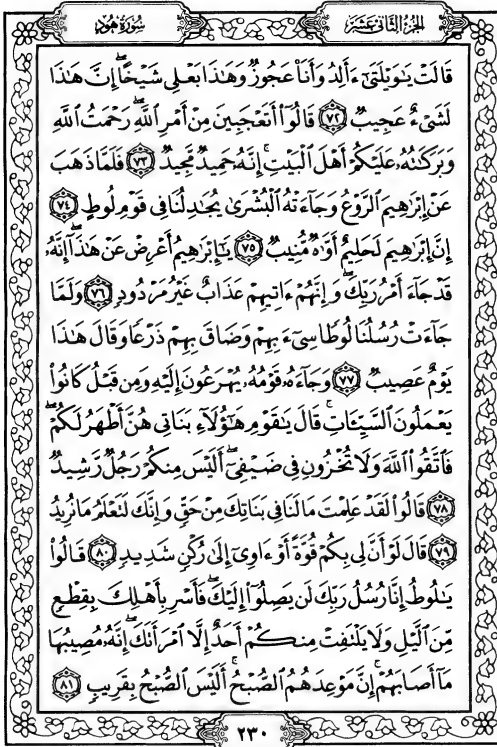 الجزء الثاني عشر
سورة هود
قَالَتْ يَٰوَيْلَتَىٰٓ ءَأَلِدُ وَأَنَا۠ عَجُوزٌ وَهَٰذَا بَعْلِى شَيْخًا ۖ إِنَّ هَٰذَا
لَشَىْءٌ عَجِيبٌ ﴿٧٢﴾ قَالُوٓا۟ أَتَعْجَبِينَ مِنْ أَمْرِ ٱللَّهِ ۖ رَحْمَتُ ٱللَّهِ
وَبَرَكَٰتُهُۥ عَلَيْكُمْ أَهْلَ ٱلْبَيْتِ ۚ إِنَّهُۥ حَمِيدٌ مَّجِيدٌ ﴿٧٣﴾ فَلَمَّا ذَهَبَ
عَنْ إِبْرَٰهِيمَ ٱلرَّوْعُ وَجَآءَتْهُ ٱلْبُشْرَىٰ يُجَٰدِلُنَا فِى قَوْمِ لُوطٍ ﴿٧٤﴾
إِنَّ إِبْرَٰهِيمَ لَحَلِيمٌ أَوَّٰهٌ مُّنِيبٌ ﴿٧٥﴾ يَٰٓإِبْرَٰهِيمُ أَعْرِضْ عَنْ هَٰذَآ ۖ إِنَّهُۥ
قَدْ جَآءَ أَمْرُ رَبِّكَ ۖ وَإِنَّهُمْ ءَاتِيهِمْ عَذَابٌ غَيْرُ مَرْدُودٍ ﴿٧٦﴾ وَلَمَّا
جَآءَتْ رُسُلُنَا لُوطًا سِىٓءَ بِهِمْ وَضَاقَ بِهِمْ ذَرْعًا وَقَالَ هَٰذَا
يَوْمٌ عَصِيبٌ ﴿٧٧﴾ وَجَآءَهُۥ قَوْمُهُۥ يُهْرَعُونَ إِلَيْهِ وَمِن قَبْلُ كَانُوا۟
يَعْمَلُونَ ٱلسَّيِّـَٔاتِ ۚ قَالَ يَٰقَوْمِ هَٰٓؤُلَآءِ بَنَاتِى هُنَّ أَطْهَرُ لَكُمْ ۖ
فَٱتَّقُوا۟ ٱللَّهَ وَلَا تُخْزُونِ فِى ضَيْفِىٓ ۖ أَلَيْسَ مِنكُمْ رَجُلٌ رَّشِيدٌ
﴿٧٨﴾ قَالُوا۟ لَقَدْ عَلِمْتَ مَا لَنَا فِى بَنَاتِكَ مِنْ حَقٍّ وَإِنَّكَ لَتَعْلَمُ مَا نُرِيدُ
﴿٧٩﴾ قَالَ لَوْ أَنَّ لِى بِكُمْ قُوَّةً أَوْ ءَاوِىٓ إِلَىٰ رُكْنٍ شَدِيدٍ ﴿٨٠﴾ قَالُوا۟
يَٰلُوطُ إِنَّا رُسُلُ رَبِّكَ لَن يَصِلُوٓا۟ إِلَيْكَ ۖ فَأَسْرِ بِأَهْلِكَ بِقِطْعٍ
مِّنَ ٱلَّيْلِ وَلَا يَلْتَفِتْ مِنكُمْ أَحَدٌ إِلَّا ٱمْرَأَتَكَ ۖ إِنَّهُۥ مُصِيبُهَا
مَآ أَصَابَهُمْ ۚ إِنَّ مَوْعِدَهُمُ ٱلصُّبْحُ ۚ أَلَيْسَ ٱلصُّبْحُ بِقَرِيبٍ ﴿٨١﴾
٢٣٠